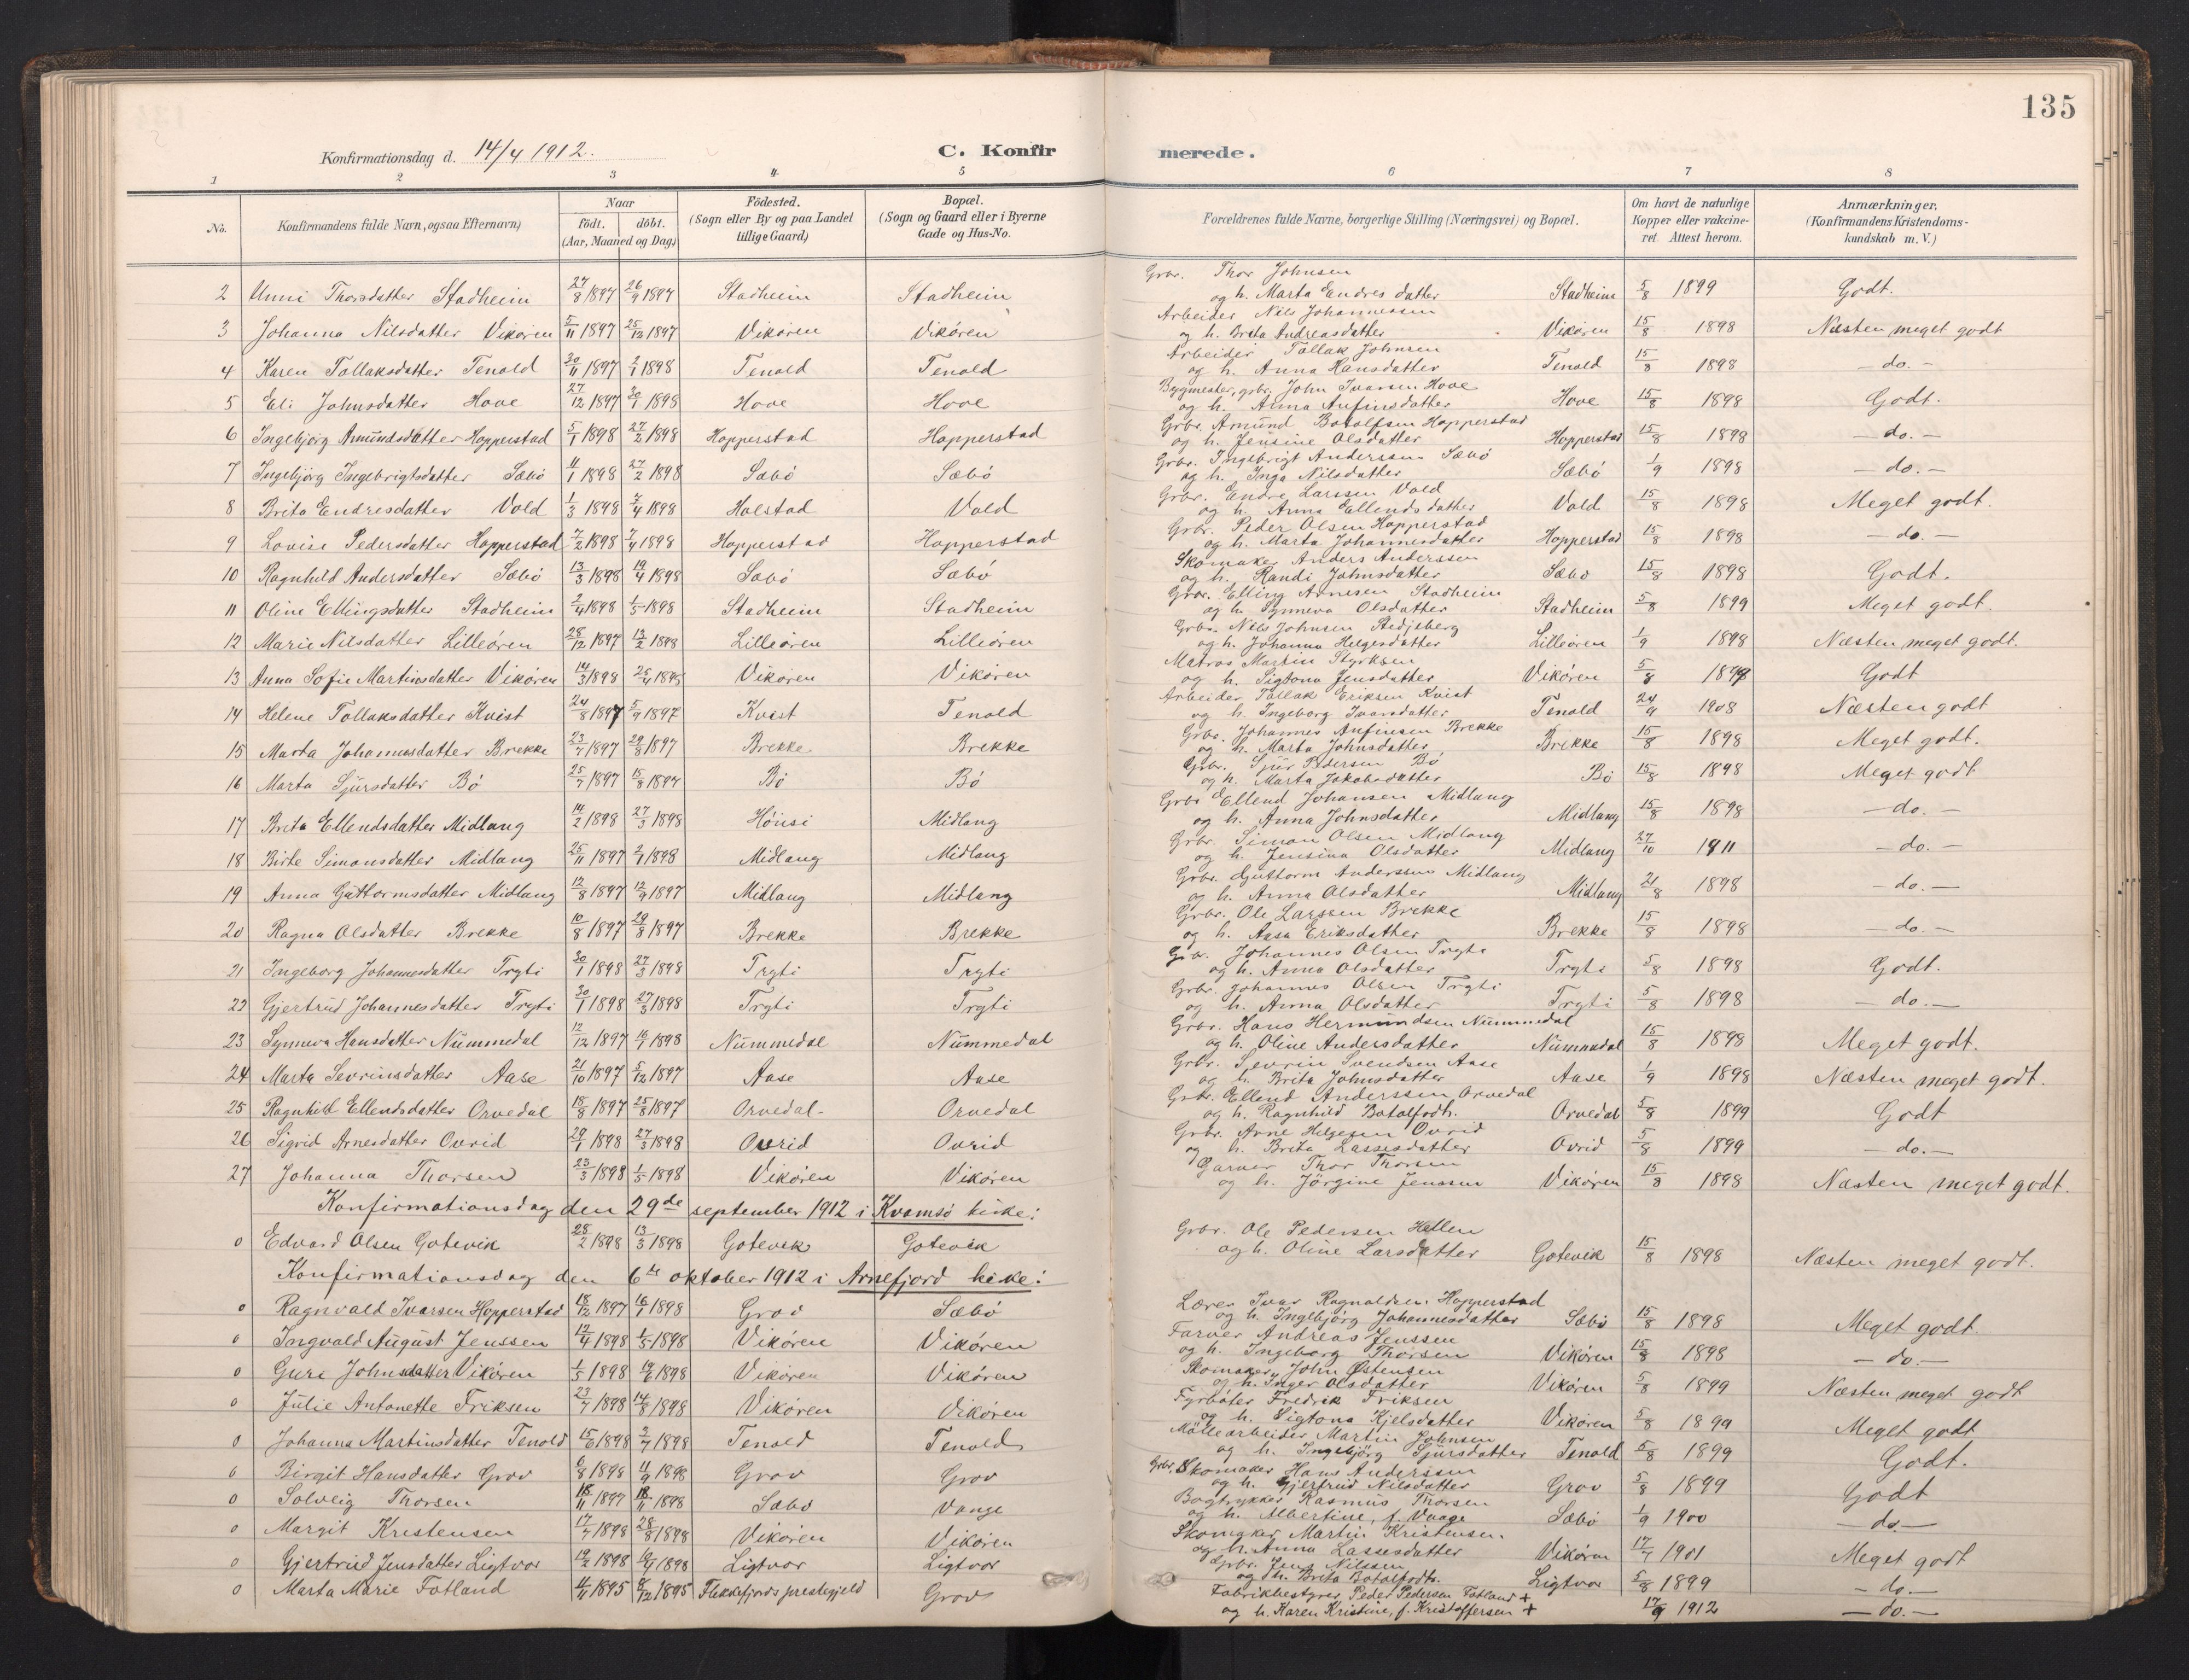 135
Konfirmationsdag d. 14/4 1912.
C. Konfirmerede.
1 2 3 4 5 6 7 8
No.
Konfirmandens fulde Navn, ogsaa Efternavn)
Naar
født. døbt.
(Aar, Maaned og Dag)
Födested.
(Sogn eller By og paa Landet
tillige Gaard)
Bopæl.
(Sogn og Gaard eller i Byerne
Gade og Hus-No.
Forældrenes fulde Navne, borgerlige Stilling (Næringsvei) og Bopæl.
Om havt de naturlige
Kopper eller vakcine-
ret. Attest herom.
Anmærkninger,
(Konfirmandens Kristendoms-
kundskab m. V.)
Gbr. Thor Johnsen
2 Unni Thorsdatter Stadheim 27/8 1897 26/9 1897 Stadheim Stadheim og h. Marta Endresdatter Stadheim 5/8 1899 Godt.
Arbeider Nils Johannessen
3 Johanna Nilsdatter Vikøren 5/11 1897 25/12 1897 Vikøren Vikøren og h. Brita Andreasdatter Vikøren 15/8 1898 Næsten meget godt
Arbeider Tollak Johnsen
4 Karen Tollaksdatter Tenold 30/11 1897 2/1 1898 Tenold Tenold og h. Anna Hansdatter Tenold 15/8 1898 – do. –
Bygmester, gbr. John Ivarsen Hove
5 Eli Johnsdatter Hove 27/12 1897 30/1 1898 Hove Hove og h. Anna Anfinsdatter Hove 15/8 1898 Godt.
Grbr. Amund Botolfsen Hopperstad
6 Ingebjørg Amundsdatter Hopperstad 5/1 1898 27/2 1898 Hopperstad Hopperstad og h. Jensine Olsdatter Hopperstad 15/8 1898 – do. –
Grbr. Ingebrigt Anderssen Sæbø
7 Ingebjørg Ingebrigtsdatter Sæbø 11/1 1898 27/2 1898 Sæbø Sæbø og h. Inga Nilsdatter Sæbø 1/9 1898 – do. –
Grbr. Endre Larssen Vold
8 Brita Endresdatter Vold 1/3 1898 7/4 1898 Holstad Vold og h. Anna Ellendsdatter Vold 15/8 1898 Meget godt.
Grbr. Peder Olsen Hopperstad
9 Lovise Pedersdatter Hopperstad 7/2 1898 7/4 1898 Hopperstad Hopperstad og h. Marta Johannesdatter Hopperstad 15/8 1898 – do. –
Skomaker Anders Anderssen
10 Ragnhild Andersdatter Sæbø 13/3 1898 19/4 1898 Sæbø Sæbø og h. Randi Johnsdatter Sæbø 15/8 1898 Godt.
Grbr. Elling Arnesen Stadheim
11 Oline Ellingsdatter Stadheim 2/4 1898 1/5 1898 Stadheim Stadheim og h. Synneva Olsdatter Stadheim 5/8 1899 Meget godt.
Grbr. Nils Johnsen Stedjeberg
12 Marie Nilsdatter Lilleøren 28/12 1897 13/2 1898 Lilleøren Lilleøren og h. Johanna Helgesdatter Lilleøren 1/9 1898 Næsten meget godt.
Matros Martin Styrksen
13 Anna Sofie Martinsdatter Vikøren 14/3 1898 Vikøren Vikøren og h. Sigtona Jensdatter Vikøren 5/8 Godt
Arbeider Tollak Eriksen Kvist
14 Helene Tollaksdatter Kvist 24/8 1897 5/9 1897 Kvist Tenold og h. Ingeborg Ivarsdatter Tenold 24/9 1908 Næsten godt
Grbr. Johannes Anfinsen Brekke
15 Marta Johannesdatter Brekke 23/7 1897 29/8 1897 Brekke Brekke og h. Marta Johnsdatter Brekke 15/8 1898 Meget godt.
Grbr. Sjur Pedersen Bø
16 Marta Sjursdatter Bø 25/7 1897 15/8 1897 Bø Bø og h. Marta Jakobsdatter Bø 15/8 1898 Meget godt
Grbr. Ellend Johansen Midlang
17 Brita Ellendsdatter Midlang 14/2 1898 27/3 1898 Hønsi Midlang og h. Anna Johnsdatter Midlang 15/8 1898 – do. –
Grbr. Simon Olsen Midlang
18 Birte Simonsdatter Midlang 25/11 1897 2/1 1898 Midlang Midlang og h. Jensina Olsdatter Midlang 27/10 1911 – do. –
Grbr. Guttorm Anderssen Midlang
19 Anna Guttormsdatter Midlang 12/8 1897 12/9 1897 Midlang Midlang og h. Anna Olsdatter Midlang 21/8 1898 – do. –
Grbr. Ole Larssen Brekke
20 Ragna Olsdatter Brekke 10/8 1897 29/8 1897 Brekke Brekke og h. Aasa Eriksdatter Brekke 15/8 1898 – do. –
Grbr. Johannes Olsen Tryti
21 Ingeborg Johannesdatter Tryti 30/1 1898 27/3 1898 Tryti Tryti og h. Anna Olsdatter Tryti 5/8 1898 Godt.
Grbr. Johannes Olsen Tryti
22 Gjertrud Johannesdatter Tryti 30/1 1898 27/3 1898 Tryti Tryti og h. Anna Olsdatter Tryti 5/8 1898 – do. –
Grbr. Hans Hermundsen Nummedal
23 Synneva Hansdatter Nummedal 12/12 1897 16/1 1898 Nummedal Nummedal og h. Oline Andersdatter Nummedal 15/8 1898 Meget godt.
Grbr. Sevrin Svendsen Aase
24 Marta Sevrinsdatter Aase 21/10 1897 5/12 1897 Aase Aase og h. Brita Johnsdatter Aase 1/9 1898 Næsten meget godt.
Grbr. Ellend Anderssen Orvedal
25 Ragnhild Ellendsdatter Orvedal 15/8 1897 25/8 1897 Orvedal Orvedal og h. Ragnhild Botolfsdtr. Orvedal 5/8 1899 Godt
Grbr. Arne Helgesen Ovrid
26 Sigrid Arnesdatter Ovrid 29/1 1898 27/3 1898 Ovrid Ovrid og h. Brita Lassesdatter Ovrid 5/8 1899 – do. –
Garver Thor Thorsen
27 Johanna Thorsen 23/3 1898 1/5 1898 Vikøren Vikøren og h. Jörgine Jenssen Vikøren 15/8 1898 Næsten meget godt.
Konfirmationsdag den 29de september 1912 i Kvamsø kirke:
Grbr. Ole Pedersen Hellen
0 Edvard Olsen Gotevik 28/2 1898 13/3 1898 Gotevik Gotevik og h. Oline Larsdatter Gotevik 15/8 1898 Næsten meget godt.
Konfirmationsdag den 6te oktober 1912 i Arnefjord kirke:
Lærer Ivar Ragnaldsen Hopperstad
0 Ragnvald Ivarsen Hopperstad 18/12 1897 16/1 1898 Grov Sæbø og h. Ingebjørg Johannesdatter Sæbø 15/8 1898 Meget godt.
Farver Andreas Jenssen
0 Ingvald August Jenssen 12/4 1898 1/5 1898 Vikøren Vikøren og h. Ingeborg Thorsen Vikøren 15/8 1898 – do. –
Skomaker John Østensen
0 Guri Johnsdatter Vikøren 1/5 1898 19/6 1898 Vikøren Vikøren og h. Inger Olsdatter Vikøren 5/8 1899 Næsten meget godt
Fyrbøter Fredrik Friksen
0 Julie Antonette Friksen 23/7 1898 14/8 1898 Vikøren Vikøren og h. Sigtona Kjelsdatter Vikøren 5/8 1899 Meget godt
Møllearbeider Martin Johnsen
0 Johanna Martinsdatter Tenold 15/6 1898 2/7 1898 Tenold Tenold og h. Ingebjørg Sjursdatter Tenold 5/8 1899 Godt.
Grbr. Skomaker Hans Anderssen
0 Birgit Hansdatter Grov 6/8 1898 11/9 1898 Grov Grov og h. Gjertrud Nilsdatter Grov 5/8 1899 Godt
Bogtrykker Rasmus Thorsen
0 Solveig Thorsen 18/11 1897 18/11 1898 Sæbø Vange og h. Albertine, f. Vaage Sæbø 1/9 1900 – do –
Skomaker Martin Kristensen
0 Margit Kristensen 17/7 1898 28/8 1898 Vikøren Vikøren og h. Anna Lassesdatter Vikøren 17/7 1901 Meget godt
Grbr. Jens Nilssen
0 Gjertrud Jensdatter Ligtvor 19/2 1898 Ligtvor Ligtvor og h. Brita Botolfsdtr. Ligtvor 5/8 1899 – do. –
Fabrikbestyrer Peder Pedersen Fotland +
0 Marta Marie Fotland 11/11 1895 8/12 1895 Flekkefjords prestegjeld Grov og h. Karen Kristine, f. Kristoffersen + 17/9 1912 – do. –